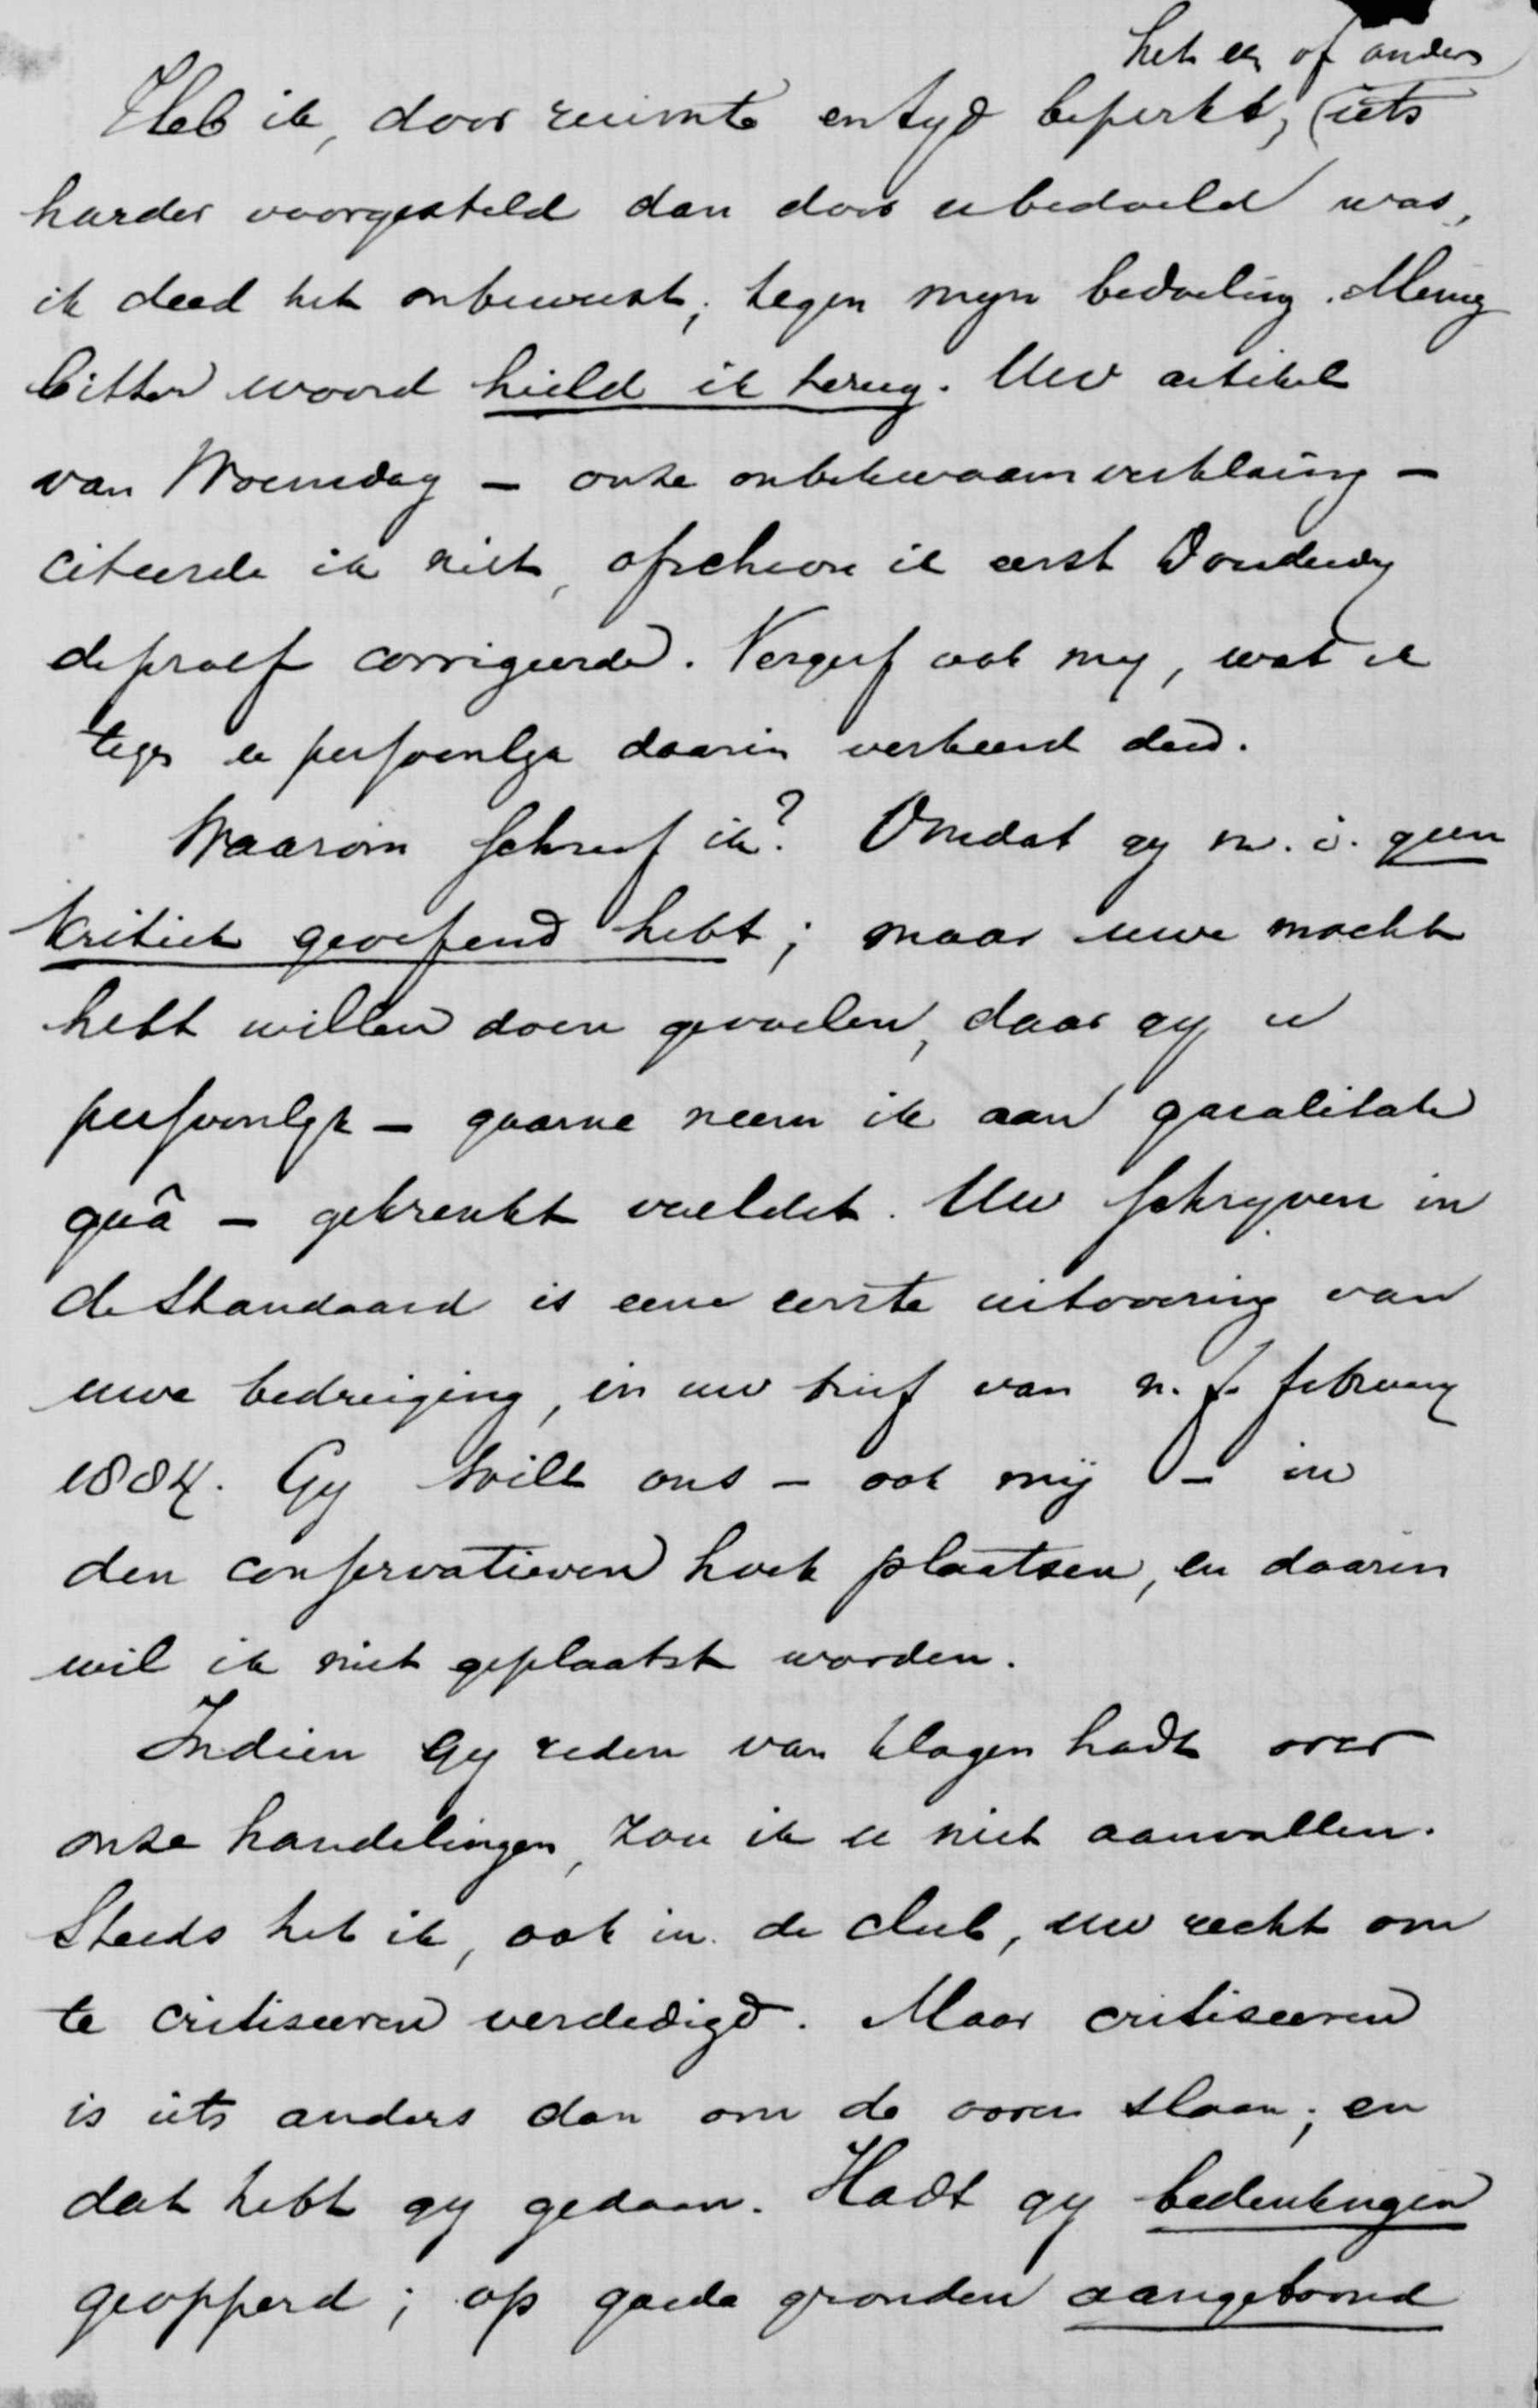 het een of ander
Heb ik, door ruimte en tyd beperkt, (iets
harder voorgesteld dan door u bedoeld was,
ik deed het onbewust; tegen myn bedoeling. Menig
bitter woord hield ik terug. Uw artikel
van Woensdag – onze onbekwaamverklaring –
citeerde ik niet, ofschoon ik eerst Donderdag
de proef corrigeerde. Vergeef ook my, wat ik
tegen u persoonlyk daarin verkeerd deed.
Waarom schreef ik? Omdat gy m. i. geen
kritiek geoefend hebt; maar uwe macht
hebt willen doen gevoelen, daar gy u
persoonlyk – gaarne neem ik aan qualitate
quâ – gekrenkt voeldet. Uw schryven in
de Standaard is eene eerste uitvoering van
uwe bedreiging, in uw brief van n. f. february
1884. Gy wilt ons – ook mij – in
den conservatieven hoek plaatsen, en daarin
wil ik niet geplaatst worden.
Indien Gy reden van klagen hadt over
onze handelingen, zou ik u niet aanvallen.
Steeds heb ik, ook in de club, uw recht om
te critiseeren verdedigd. Maar critiseeren
is iets anders dan om de ooren slaan; en
dat hebt gy gedaan. Hadt gy bedenkingen
geopperd; op goede gronden aangetoond